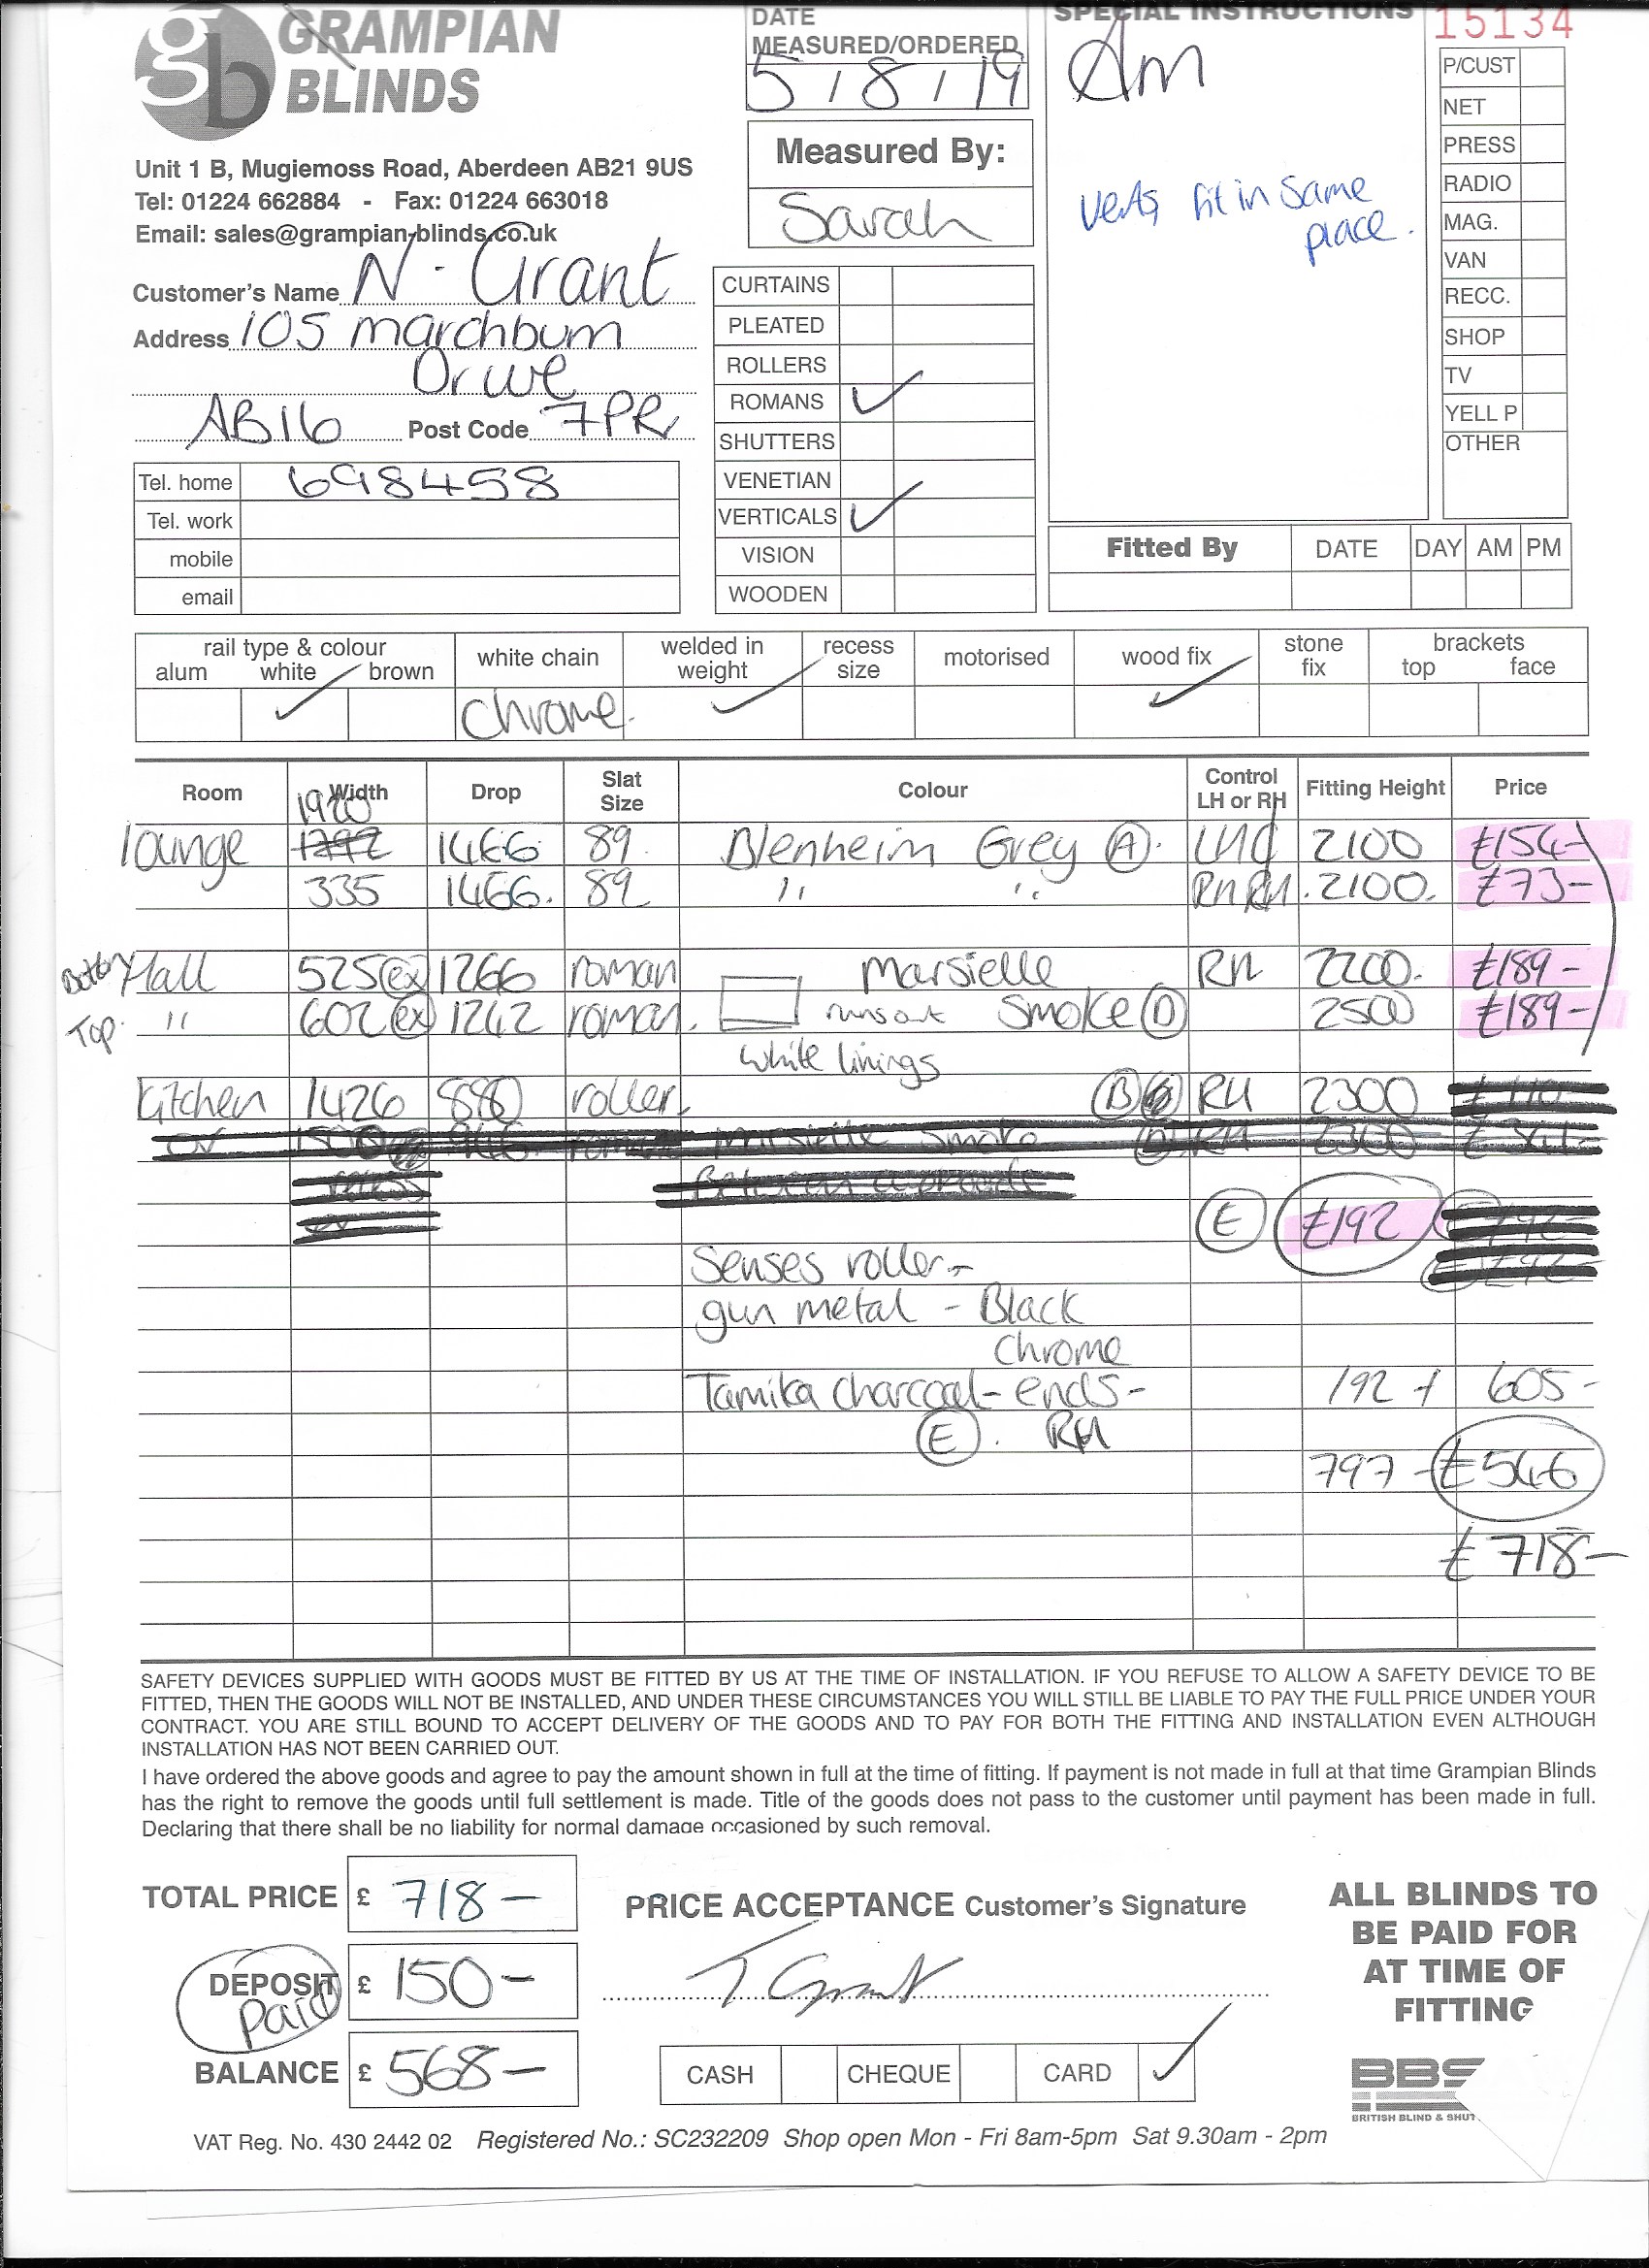 GRAMPIAN
BLINDS
gb
Unit 1 B, Mugiemoss Road, Aberdeen AB21 9US
Tel: 01224 662884 - Fax: 01224 663018
Email: sales@grampian-blinds.co.uk
Customer's Name N. Grant
Address 105 marchburn
Drive
AB16 Post Code 7PR
Tel. home 698458
Tel. work
mobile
email
DATE
MEASURED/ORDERED
5 / 8 / 19
Measured By:
Sarah
CURTAINS
PLEATED
ROLLERS
ROMANS ✓
SHUTTERS
VENETIAN
VERTICALS ✓
VISION
WOODEN
SPECIAL INSTRUCTIONS
Am
Verts fit in same
place.
15134
P/CUST
NET
PRESS
RADIO
MAG.
VAN
RECC.
SHOP
TV
YELL P
OTHER
Fitted By DATE DAY AM PM
rail type & colour
alum white brown
white chain
welded in
weight
recess
size
motorised
wood fix
stone
fix
brackets
top face
✓ Chrome. ✓ ✓
Room Width Drop Slat Size Colour Control LH or RH Fitting Height Price
1920
lounge 1466 89 Blenheim Grey (A). 2100 £154-
335 1466. 89 " " RH. 2100. £73-
Bottom Hall 525(ex) 1266 roman Marsielle RH 2200. £189-
Top. " 602(ex) 1242 roman. runs out Smoke (D) 2500 £189-
White linings
Kitchen 1426 880 roller. (B) RH 2300
(E) £192
Senses roller-
gun metal - Black
Chrome
Tamika charcoal - ends - 192 + 605-
(E). RH
797 - £546
£718-
SAFETY DEVICES SUPPLIED WITH GOODS MUST BE FITTED BY US AT THE TIME OF INSTALLATION. IF YOU REFUSE TO ALLOW A SAFETY DEVICE TO BE
FITTED, THEN THE GOODS WILL NOT BE INSTALLED, AND UNDER THESE CIRCUMSTANCES YOU WILL STILL BE LIABLE TO PAY THE FULL PRICE UNDER YOUR
CONTRACT. YOU ARE STILL BOUND TO ACCEPT DELIVERY OF THE GOODS AND TO PAY FOR BOTH THE FITTING AND INSTALLATION EVEN ALTHOUGH
INSTALLATION HAS NOT BEEN CARRIED OUT.
I have ordered the above goods and agree to pay the amount shown in full at the time of fitting. If payment is not made in full at that time Grampian Blinds
has the right to remove the goods until full settlement is made. Title of the goods does not pass to the customer until payment has been made in full.
Declaring that there shall be no liability for normal damage occasioned by such removal.
TOTAL PRICE £ 718-
DEPOSIT £ 150-
paid
BALANCE £ 568-
PRICE ACCEPTANCE Customer's Signature
T Grant
CASH CHEQUE CARD ✓
ALL BLINDS TO
BE PAID FOR
AT TIME OF
FITTING
BBS
BRITISH BLIND & SHUT
VAT Reg. No. 430 2442 02 Registered No.: SC232209 Shop open Mon - Fri 8am-5pm Sat 9.30am - 2pm